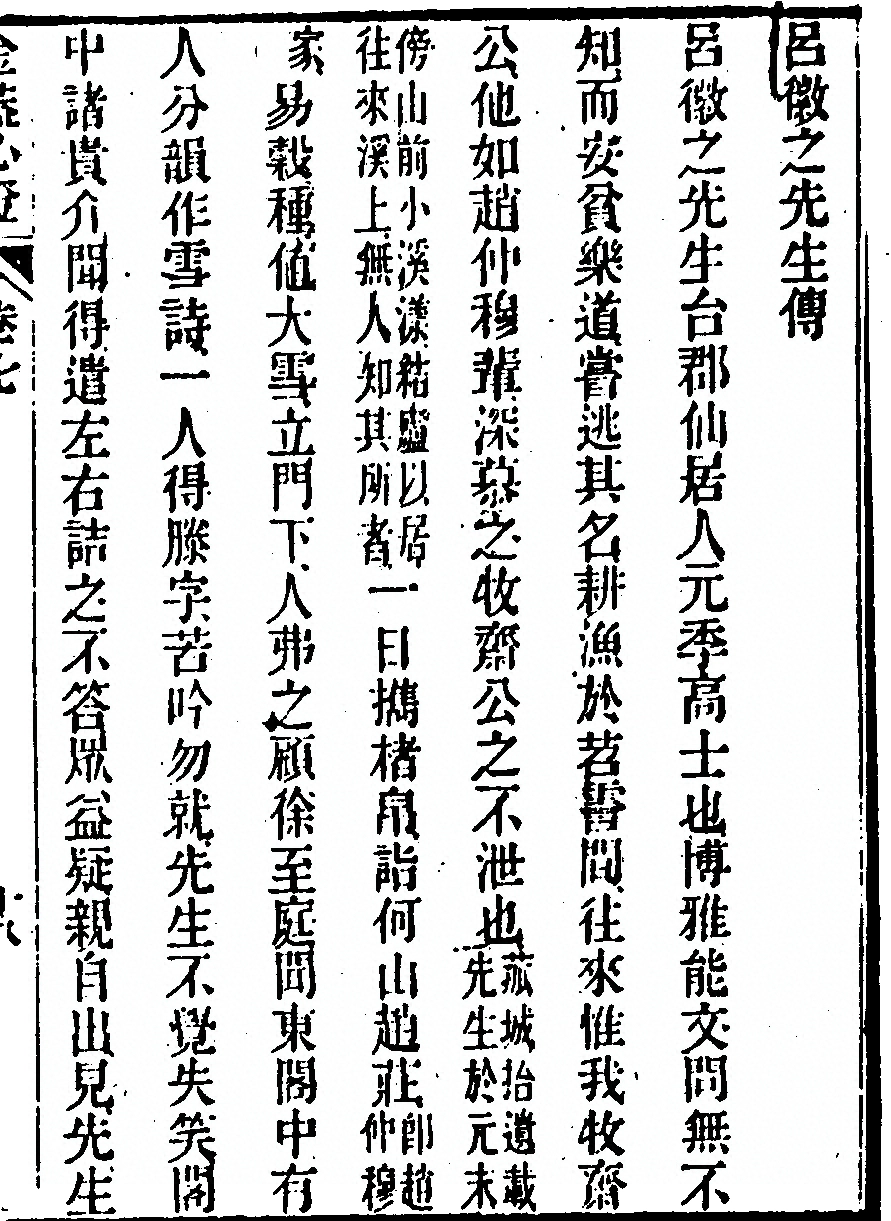 呂徽之先生傳
呂徽之先生台郡仙居人元季高士也博雅能文問無不
知而安貧樂道嘗逃其名耕漁於苕霅間往來惟我牧齋
公他如趙仲穆輩深慕之牧齋公之不泄也菰城拾遺載先生於元末
傍山前小溪漾結廬以居往來溪上無人知其所者一日攜楮帛詣何山趙莊即趙仲穆
家易穀種值大雪立門下人弗之顧徐至庭間東閣中有
人分韻作雪詩一人得滕字苦吟勿就先生不覺失笑閣
中諸貴介聞得遣左右詰之不答眾益疑親自出見先生